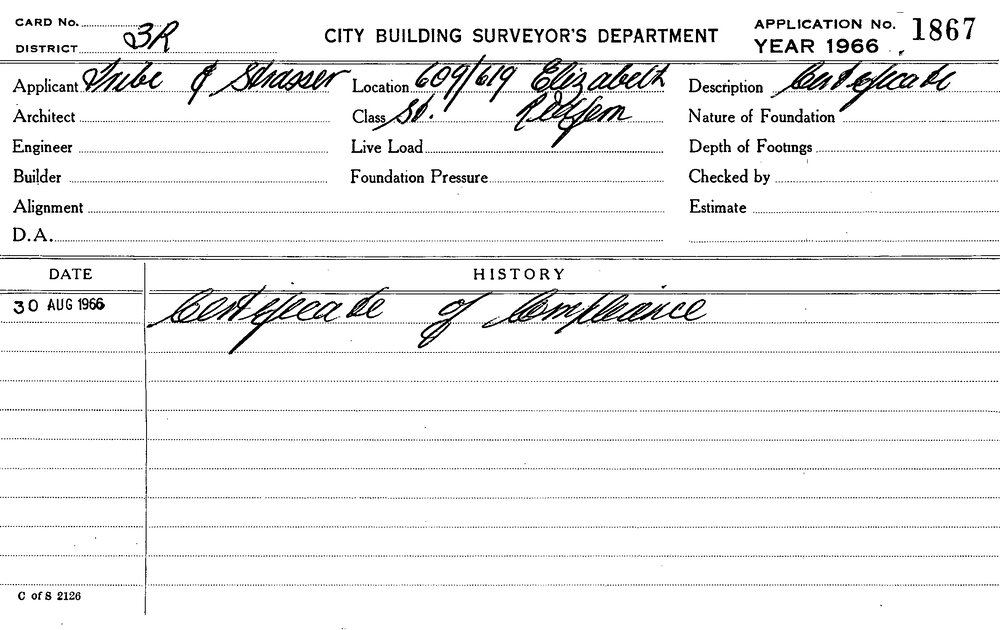 CARD No.
DISTRICT 3R
CITY BUILDING SURVEYOR'S DEPARTMENT
APPLICATION No. 1867
YEAR 1966
Applicant Tribe & Strasser Location 609/619 Elizabeth Description Certificate
Architect Class St. Redfern Nature of Foundation
Engineer Live Load Depth of Footings
Builder Foundation Pressure Checked by
Alignment Estimate
D.A.
DATE HISTORY
30 AUG 1966 Certificate of Compliance
C of S 2126